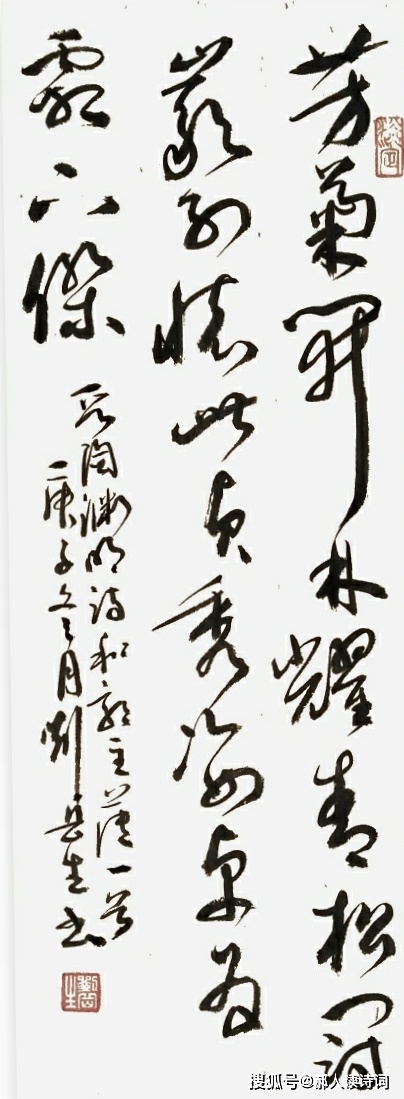 芳菊開林耀青松冠
巖列懷此貞秀姿卓為
霜下傑
陶渊明诗和郭主簿一首
庚子冬月劉岳生书
搜狐号@郝人读诗词